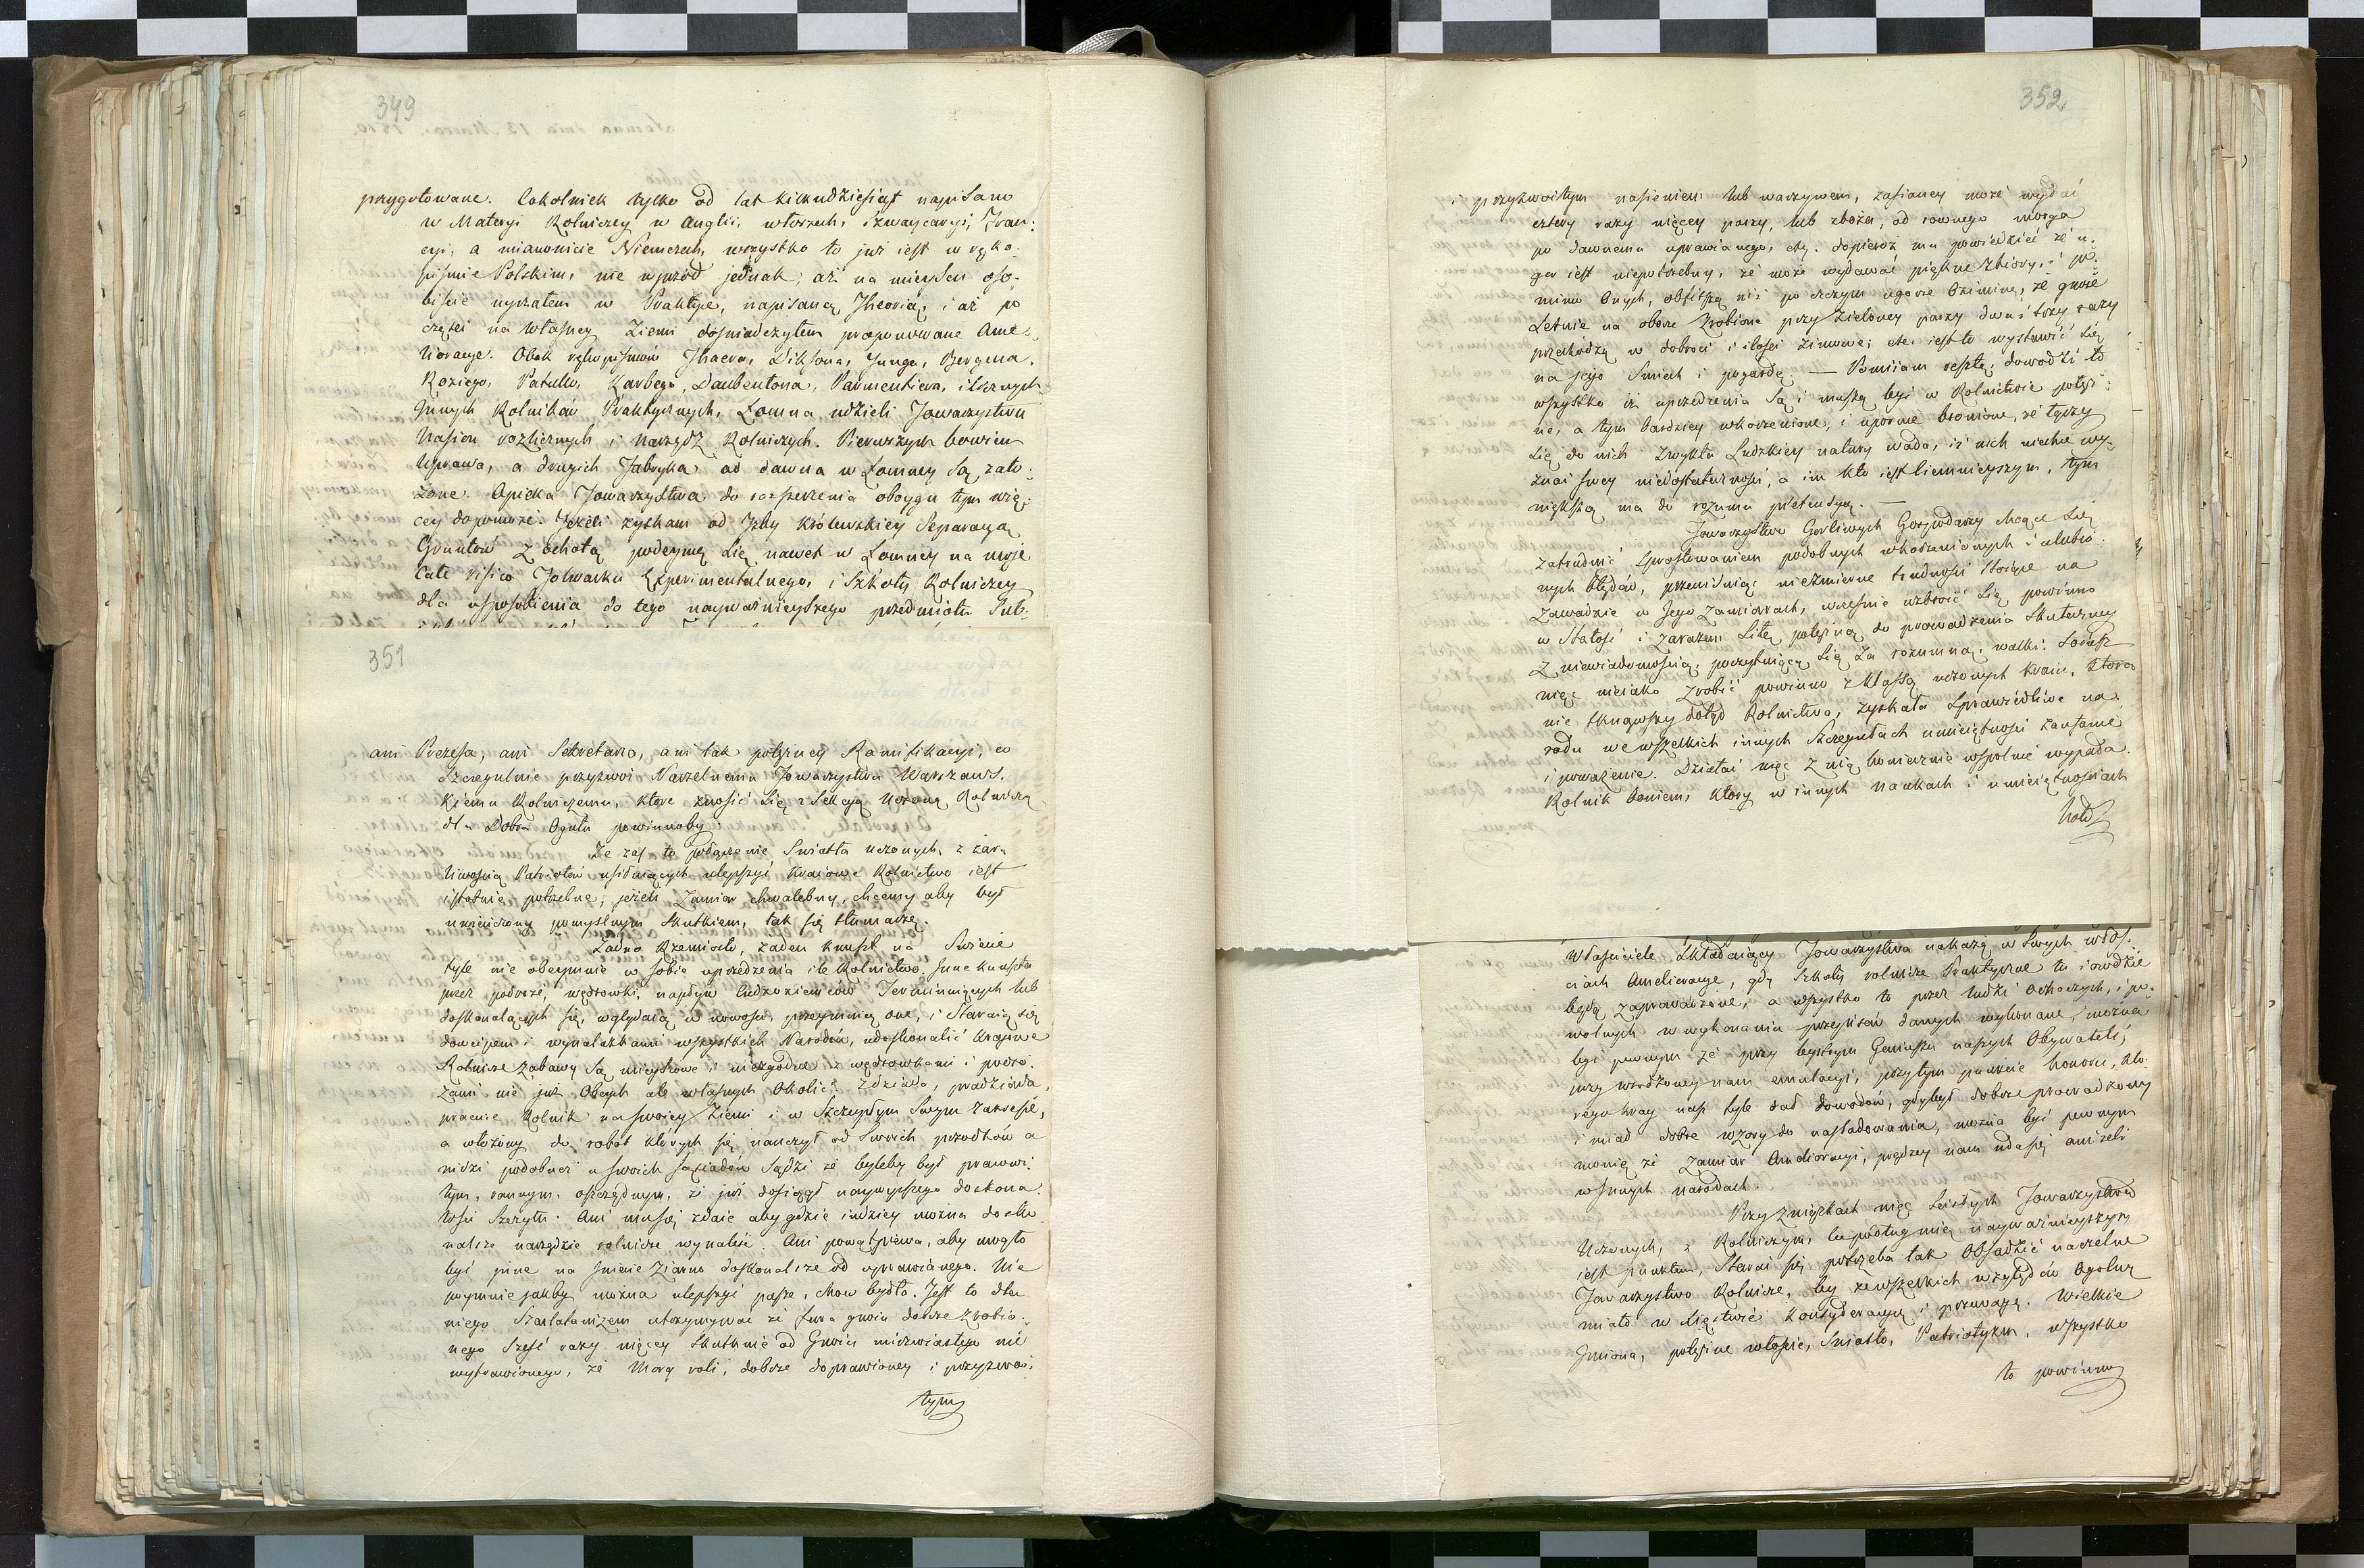 349
przygotowane. Cokolwiek tylko od lat kilkudziesiąt napisano
w Materyi Rolniczey w Anglii, włoszech, Szwaycaryi, Fran:
cyi, a mianowicie Niemczech, wszystko to już iest w ręko:
piśmie Polskim, nie wprzód jednak, aż na mieyscu oso:
biście uyrzałem w Praktyce, napisaną Theorią, i aż po
części na własney Ziemi doświadczyłem proponowane Ame:
lioracye. Obok rękopismów Thaera, Diksona, Junga, Bergena,
Roziego, Patullo, Karbego, Daubentona, Parmentiera, i licznych
Innych Rolników Praktycznych, Łomna udzieli Towarzystwu
Nasion rozlicznych i Narzędz Rolniczych. Pierwszych bowiem
Uprawa, a drugich Fabryka od dawna w Łomney są zało:
żone. Opieka Towarzystwa do rozszerzenia oboyga tym wię:
cey dopomoże. Jeżeli zyskam od Izby Królewskiey Separacyą
Gruntów z ochotą podeymę się nawet w Łomney na moje
całe risico Folwarku Experimentalnego, i Szkoły Rolniczey
dla usposobienia do tego nayważnieyszego przedmiotu Sub:
351
ani Prezesa, ani Sekretarza, ani tak potężney Ramifikacyi, co
szczegulnie przyzwoi Naczelnemu Towarzystwu Warszaws:
kiemu Rolniczemu, które znosić się z Sekcyą Uczoną Rolniczą
dla Dobra Ogułu powinnoby.
Że zaś to połączenie Swiatła uczonych, z żar:
liwością Patriotów usiłuiących ulepszyć kraiowe Rolnictwo iest
istotnie potrzebne, jeżeli Zamiar chwalebny, chcemy aby był
uwieńczony pomyślnym skutkiem, tak się tłumaczę.
Żadno Rzemiosło, żaden kunszt na Swiecie
tyle nie obeymuie w sobie uprzedzenia ile Rolnictwo. Inne kunszta
przez podróże, wędrowki, napływ Cudzoziemców Terminuiących lub
doskonalących się, wglądaią w nowości, przeymuią one, i staraią się
dowcipem i wynalazkami wszystkich Narodów, udoskonalić krajowe
Rolnicze zabawy są mieyscowe i niezgodne z wędrowkami i podró:
żami nie już Obcych ale własnych Okolic. Zdziada, pradziada,
pracuie Rolnik na swoiey Ziemi i w szczupłym swym zakresie,
a włożony do robót których się nauczył od Swoich przodków a
widzi podobneż u swoich sąsiadów sądzi że byleby był pracowi:
tym, rannym, oszczędnym, że już dosiągł naywyższego doskona:
łości szczytu. Ani mu się zdaie aby gdzie indziey można dosko
nalsze narzędzie rolnicze wynaleść. Ani powątpiewa, aby mogło
być inne na świecie Ziarno doskonalsze od uprawianego. Nie
poymuie jakby można ulepszyć paszę, chow bydła. Jest to dla
niego Szarlatanizem utrzymywać że fura gnoiu dobrze zrobio:
nego sześć razy więcey skutkuie od Gnoiu niedźwiastego nie
wytrawionego, że Morg roli, dobrze doprawioney i przyzwoi:
tym
352
i przyzwoitym nasieniem lub warzywem, zasianey może wydać
cztery razy więcey paszy, lub zboża, od rownego morga
po dawnemu uprawianego, etc. dopieroż mu powiedzieć że u:
gor iest niepotrzebny, że może wydawać piękne zbiory, i po:
mimo Onych, obfitszą niż po czczym ugorze Oziminę, że gnoie
Letnie na oborze zrobione przy zieloney paszy dwa i trzy razy
przechodzą w dobroci i ilości zimowe; etc. iest to wystawić się
na jego śmiech i pogardę — Pomiiam resztę, dowodzi to
wszystko iż uprzedzenia są i muszą być w Rolnictwie potęż:
ne, a tym bardziey wkorzenione, i uporne bronione, że łączy
się do nich zwykła Ludzkiey natury wada, iż nich niechce wy:
znać swey niedostateczności, a im kto iest ciemnieyszym, tym
większą ma do rozumu pretensyą. —
Towarzystwo Gorliwych Gospodarzy chcące się
zatrudnić sprostowaniem podobnych wkorzenionych i ulubio:
nych błędów, przewiduiąc niezmierne trudności stoiące na
Zawadzie w Jego zamiarach, wcześnie uzbroić się powinno
w Stałość i zarazem siłę potężną do prowadzenia skuteczney
z niewiadomością, poczytuiącą się za rozumną, walki. Soiusz
więc nieiako zrobić powinno z klassą uczonych kraiu, która
nie tknąwszy dotąd Rolnictwa, zyskała sprawiedliwe na:
rodu we wszelkich innych szczegułach umieiętności zaufanie
i poważenie. Działać więc z nią koniecznie wspolnie wypada.
Rolnik bowiem, który w innych naukach i umieiętnościach
Właściciele składaiący Towarzystwa nakażą w Swych włos:
ciach Amelioracye, gdy szkoły rolnicze Praktyczne tu i owdzie
będą zaprowadzone, a wszystko to przez ludzi Ochoczych, i po:
wolnych w wykonaniu przepisów danych wykonane, można
być pewnym że przy bystrym Geniuszu naszych Obywateli,
przy wrodzoney nam emulacyi, przytym punkcie honoru, któ:
rego kray nasz tyle dał dowodów, gdyby był dobrze prowadzony
i miał dobre wzory do nasladowania, można być pewnym
mowię że zamiar Amelioracyi, prędzey nam uda się aniżeli
w Innych narodach.
Przy związkach więc ścisłych Towarzystwa
Uczonych, z Rolniczym, co podług mię nayważnieyszym
iest punktem, starać się potrzeba tak Obsadzić naczelne
Towarzystwo Rolnicze, by ze wszelkich względów Ogolną
miało w Xięstwie Konsyderacyą i przewagę. Wielkie
Imiona, potężne włoście, Swiatło, Patriotyzm, wszystko
to powinno